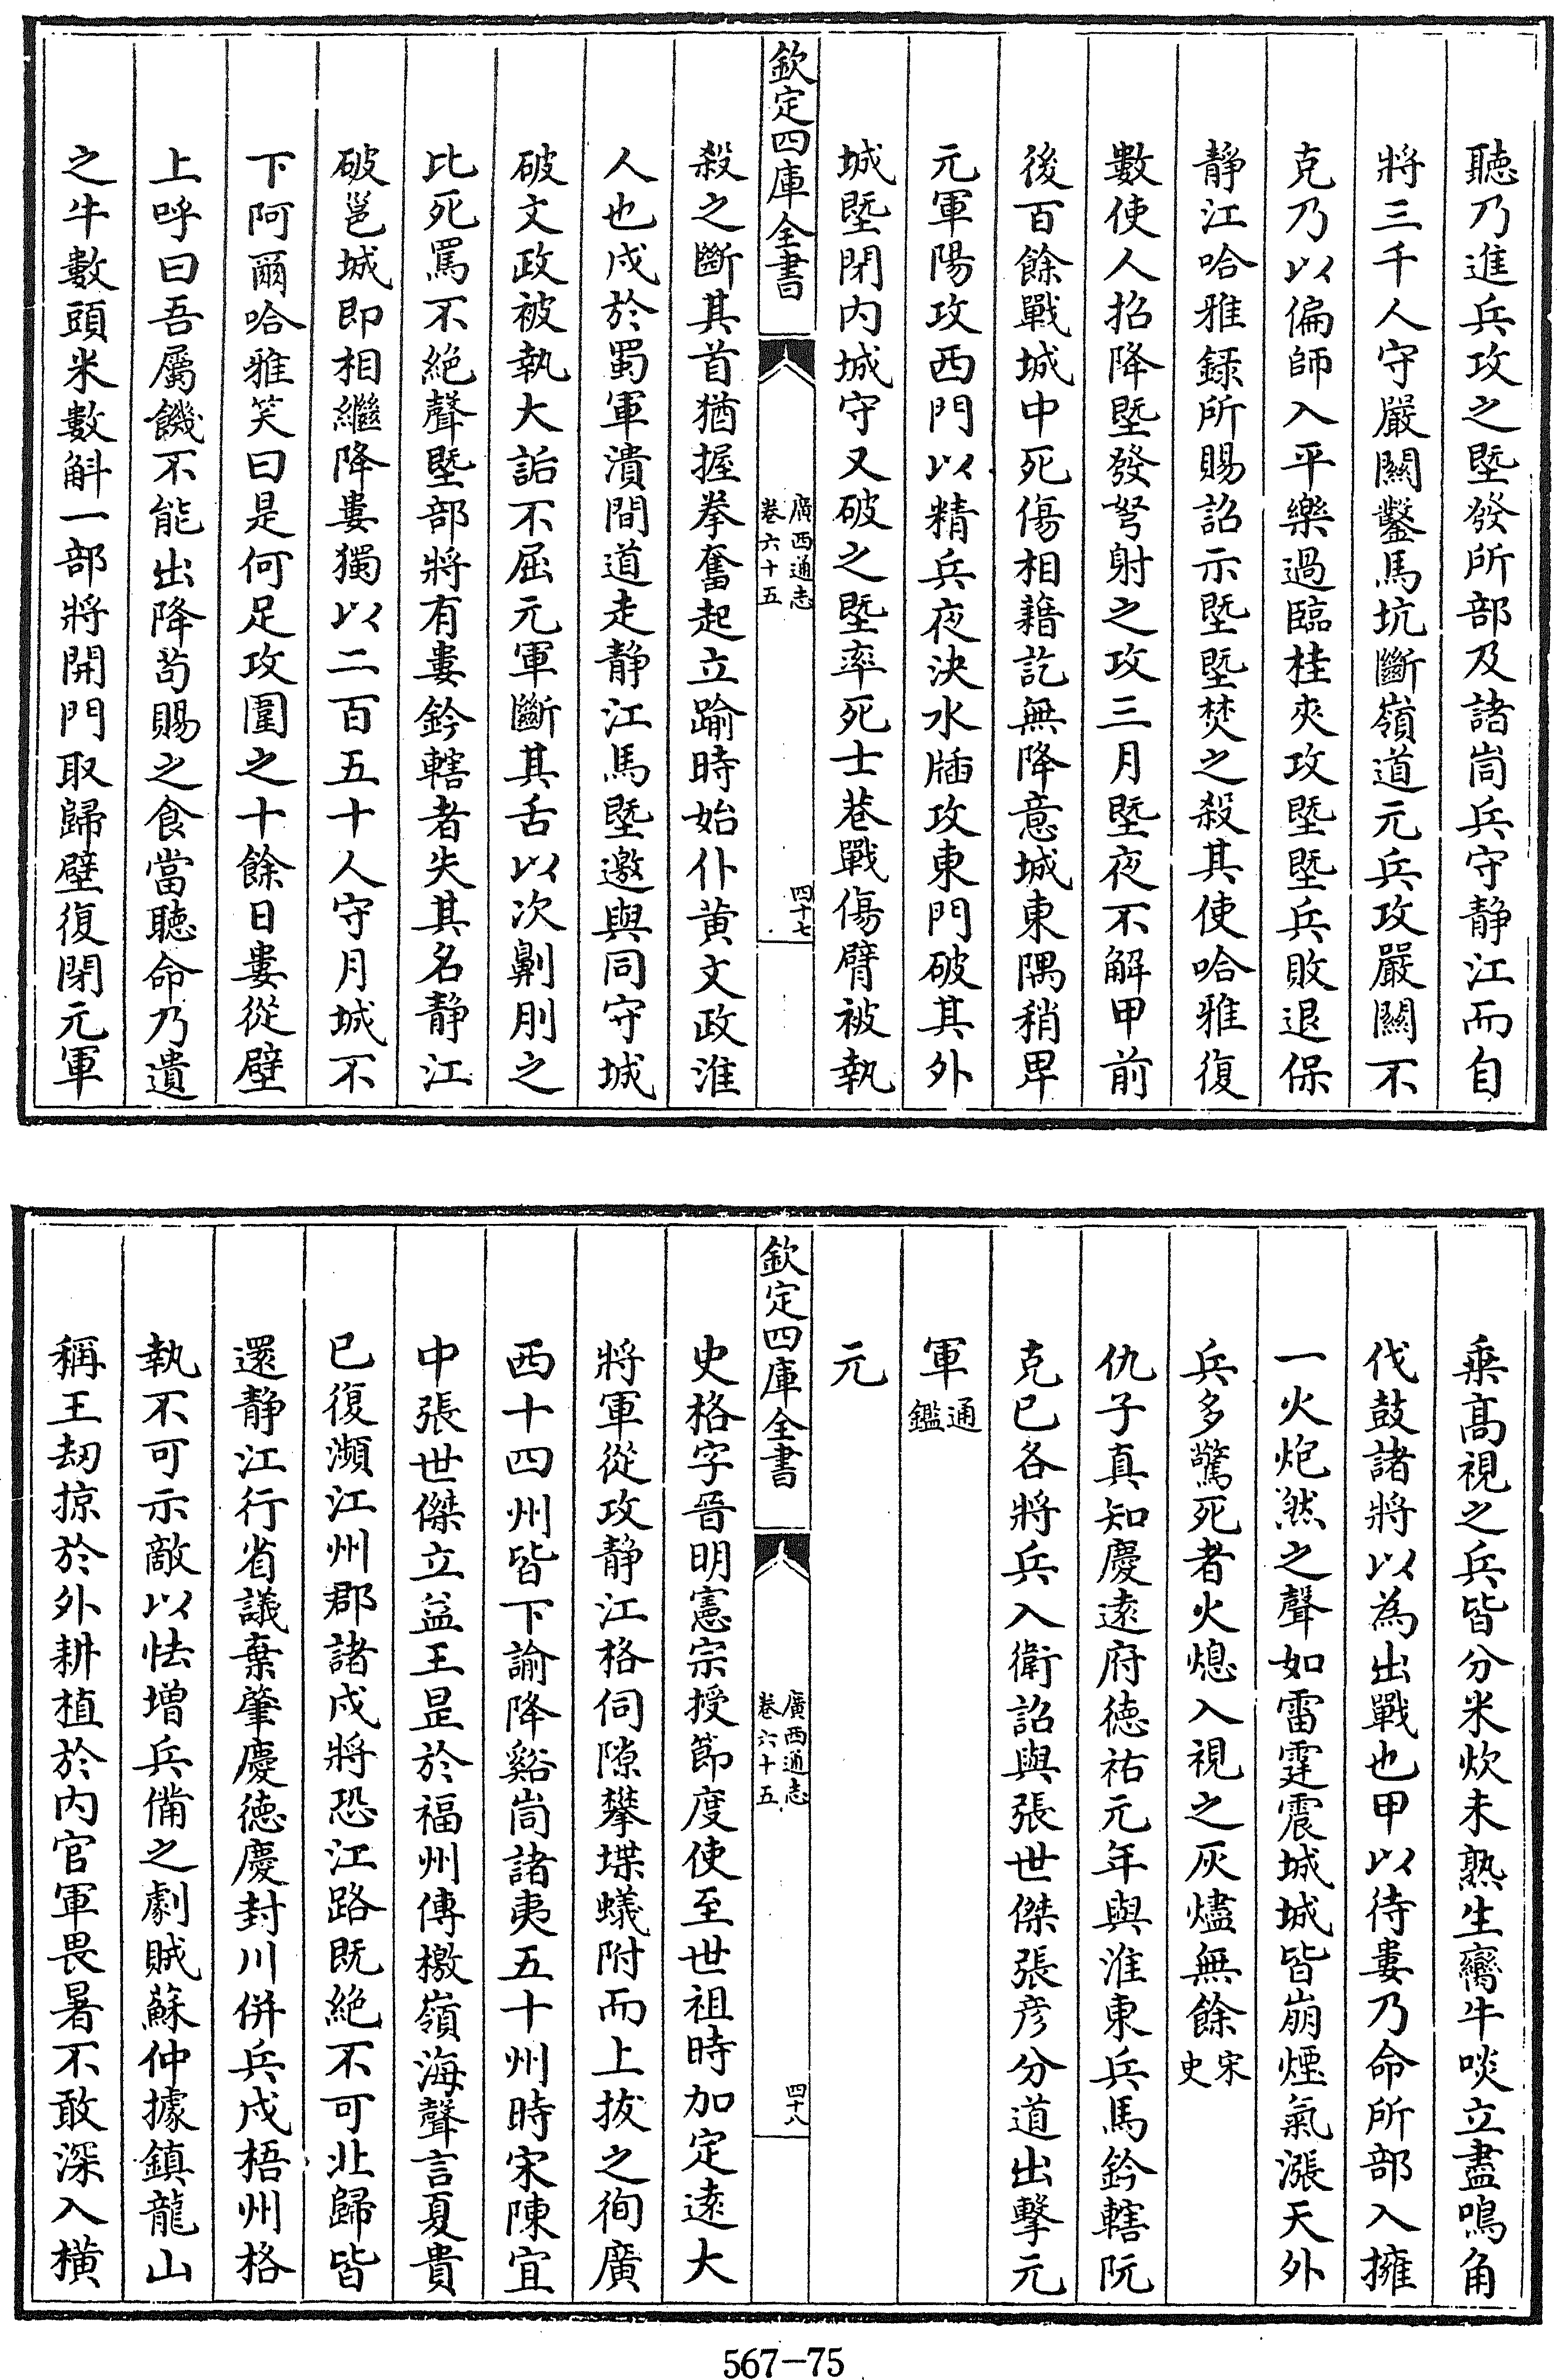 聽乃進兵攻之塈發所部及諸峝兵守静江而自
將三千人守嚴關鑿馬坑斷嶺道元兵攻嚴關不
克乃以偏師入平樂過臨桂夾攻塈塈兵敗退保
静江哈雅録所賜詔示塈塈焚之殺其使哈雅復
數使人招降塈發弩射之攻三月塈夜不解甲前
後百餘戰城中死傷相藉訖無降意城東隅稍卑
元軍陽攻西門以精兵夜決水牐攻東門破其外
城塈閉内城守又破之塈率死士巷戰傷臂被執
欽定四庫全書
廣西通志
卷六十五
四十七
殺之斷其首猶握拳奮起立踰時始仆黄文政淮
人也戍於蜀軍潰間道走静江馬塈邀與同守城
破文政被執大詬不屈元軍斷其舌以次劓刖之
比死罵不絶聲塈部將有婁鈐轄者失其名静江
破邕城即相繼降婁獨以二百五十人守月城不
下阿爾哈雅笑曰是何足攻圍之十餘日婁從壁
上呼曰吾屬饑不能出降苟賜之食當聽命乃遺
之牛數頭米數斛一部將開門取歸壁復閉元軍
乗髙視之兵皆分米炊未熟生臠牛啖立盡鳴角
伐鼓諸將以為出戰也甲以待婁乃命所部入擁
一火炮㸐之聲如雷霆震城城皆崩煙氣漲天外
兵多驚死者火熄入視之灰燼無餘宋史
仇子真知慶遠府德祐元年與淮東兵馬鈐轄阮
克已各將兵入衛詔與張世傑張彦分道出擊元
軍通鑑
元
欽定四庫全書
廣西通志
卷六十五
四十八
史格字晉明憲宗授節度使至世祖時加定遠大
將軍從攻静江格伺隙攀堞蟻附而上拔之徇廣
西十四州皆下諭降谿峝諸夷五十州時宋陳宜
中張世傑立益王昰於福州傳檄嶺海聲言夏貴
已復瀕江州郡諸戍將恐江路既絶不可北歸皆
還静江行省議棄肇慶德慶封川併兵戍梧州格
執不可示敵以怯増兵備之劇賊蘇仲據鎮龍山
稱王刼掠於外耕植於内官軍畏暑不敢深入横
567-75